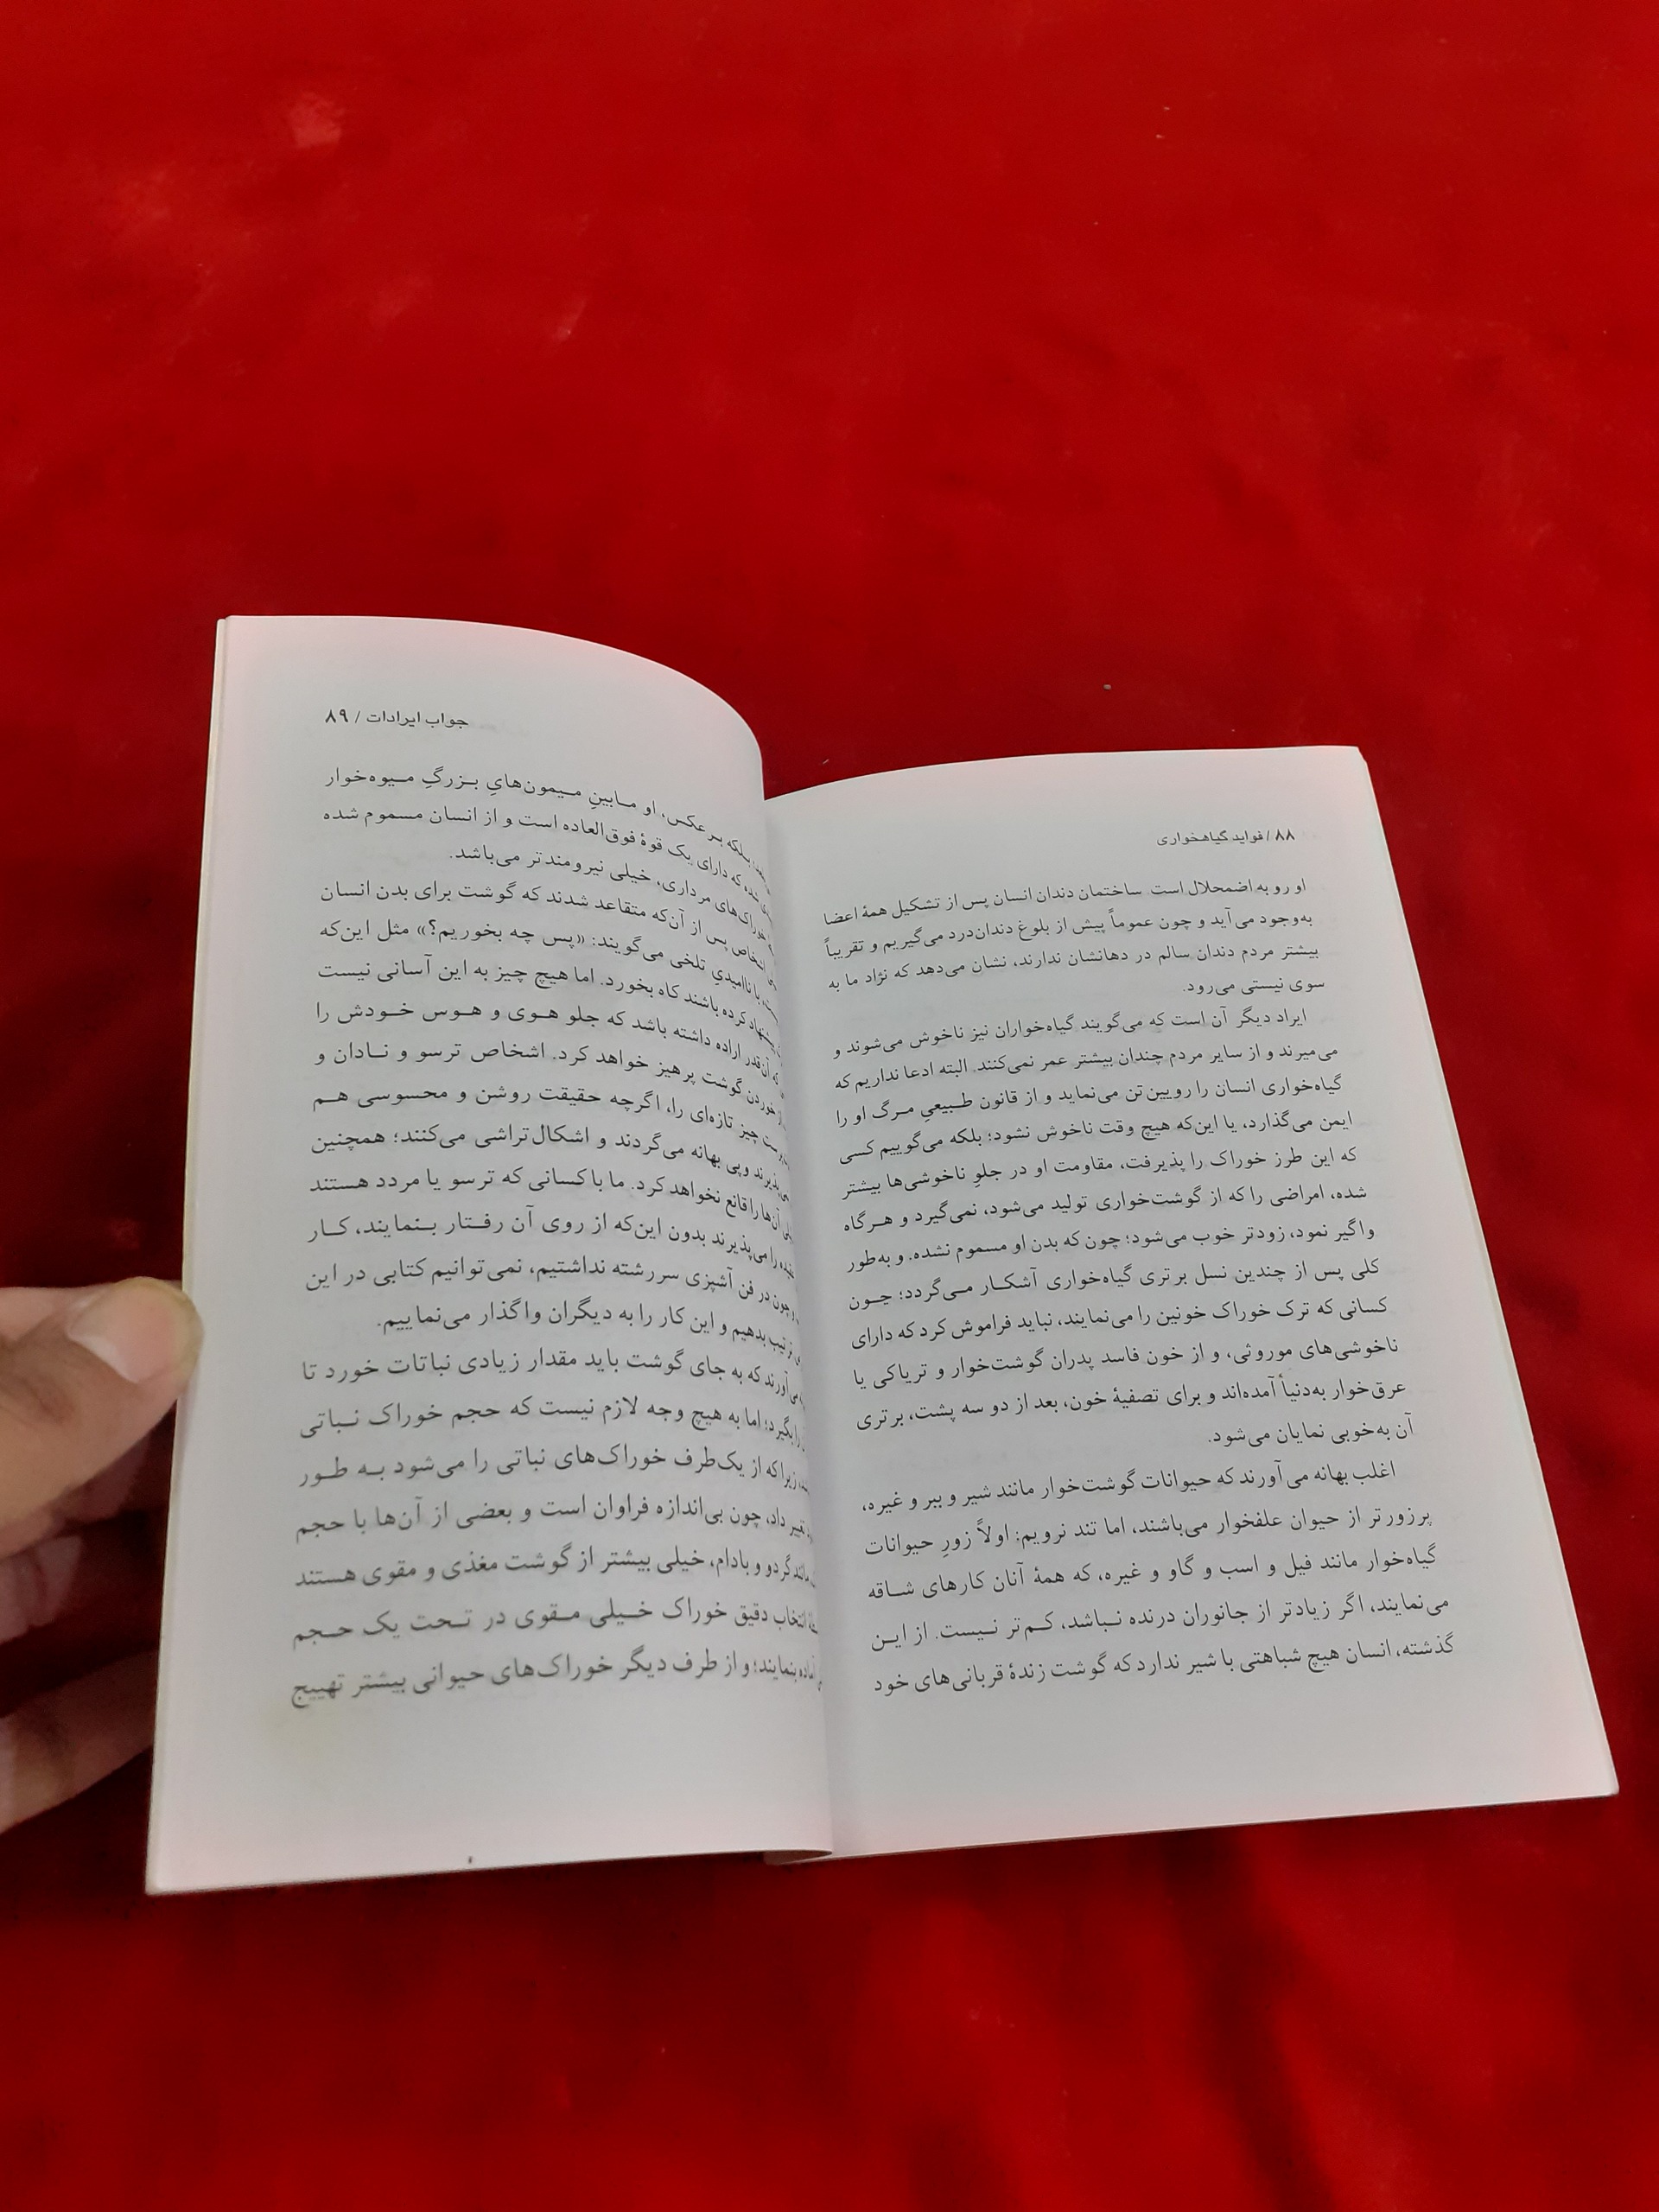 ۸۸ / فواید گیاهخواری
او رو به اضمحلال است. ساختمان دندان انسان پس از تشکیل همهٔ اعضا
به‌وجود می‌آید و چون عموماً پیش از بلوغ دندان‌درد می‌گیریم و تقریباً
بیشتر مردم دندان سالم در دهانشان ندارند، نشان می‌دهد که نژاد ما به
سوی نیستی می‌رود.
ایراد دیگر آن است که می‌گویند گیاه‌خواران نیز ناخوش می‌شوند و
می‌میرند و از سایر مردم چندان بیشتر عمر نمی‌کنند. البته ادعا نداریم که
گیاه‌خواری انسان را رویین‌تن می‌نماید و از قانون طـبیعیِ مـرگ او را
ایمن می‌گذارد، یا این‌که هیچ وقت ناخوش نشود؛ بلکه می‌گوییم کسی
که این طرز خوراک را پذیرفت، مقاومت او در جلوِ ناخوشی‌ها بیشتر
شده، امراضی را که از گوشت‌خواری تولید می‌شود، نمی‌گیرد و هـرگاه
واگیر نمود، زودتر خوب می‌شود؛ چون که بدن او مسموم نشده. و به‌طور
کلی پس از چندین نسل برتری گیاه‌خواری آشکـار مـی‌گردد؛ چـون
کسانی که ترک خوراک خونین را می‌نمایند، نباید فراموش کرد که دارای
ناخوشی‌های موروثی، و از خون فاسد پدران گوشت‌خوار و تریاکی یا
عرق‌خوار به‌دنیا آمده‌اند و برای تصفیهٔ خون، بعد از دو سه پشت، برتری
آن به‌خوبی نمایان می‌شود.
اغلب بهانه می‌آورند که حیوانات گوشت‌خوار مانند شیر و ببر و غیره،
پرزورتر از حیوان علفخوار می‌باشند، اما تند نرویم: اولاً زورِ حیوانات
گیاه‌خوار مانند فیل و اسب و گاو و غیره، که همهٔ آنان کارهای شـاقه
می‌نمایند، اگر زیادتر از جانوران درنده نـباشد، کـم‌تر نـیست. از ایـن
گذشته، انسان هیچ شباهتی با شیر ندارد که گوشت زندهٔ قربانی‌های خود
جواب ایرادات / ۸۹
بـلکه بـرعکس، او مـابینِ مـیمون‌هایِ بـزرگِ مـیوه‌خوار
که دارای یک قوهٔ فوق‌العاده است و از انسان مسموم شده
خوراک‌های مرداری، خیلی نیرومندتر می‌باشد.
اشخاص پس از آن‌که متقاعد شدند که گوشت برای بدن انسان
با ناامیدیِ تلخی می‌گویند: «پس چه بخوریم؟» مثل این‌که
کرده باشند کاه بخورد. اما هیچ چیز به این آسانی نیست
که آن‌قدر اراده داشته باشد که جلو هـوی و هـوس خـودش را
خوردن گوشت پرهیز خواهد کرد. اشخاص ترسو و نـادان و
چیز تازه‌ای را، اگرچه حقیقت روشن و محسوسی هـم
پذیرند و پی بهانه می‌گردند و اشکال‌تراشی می‌کنند؛ همچنین
آن‌ها را قانع نخواهد کرد. ما با کسانی که ترسو یا مردد هستند
را می‌پذیرند بدون این‌که از روی آن رفـتار بـنمایند، کـار
چون در فن آشپزی سررشته نداشتیم، نمی‌توانیم کتابی در این
ترتیب بدهیم و این کار را به دیگران واگذار می‌نماییم.
می‌آورند که به جای گوشت باید مقدار زیادی نباتات خورد تا
بگیرد؛ اما به هیچ وجه لازم نیست که حجم خوراک نـباتی
زیرا که از یک‌طرف خوراک‌های نباتی را می‌شود بـه طـور
تغییر داد، چون بی‌اندازه فراوان است و بعضی از آن‌ها با حجم
مانند گردو و بادام، خیلی بیشتر از گوشت مغذی و مقوی هستند
انتخاب دقیق خوراک خـیلی مـقوی در تـحت یک حـجم
بنمایند؛ و از طرف دیگر خوراک‌های حیوانی بیشتر تهییج